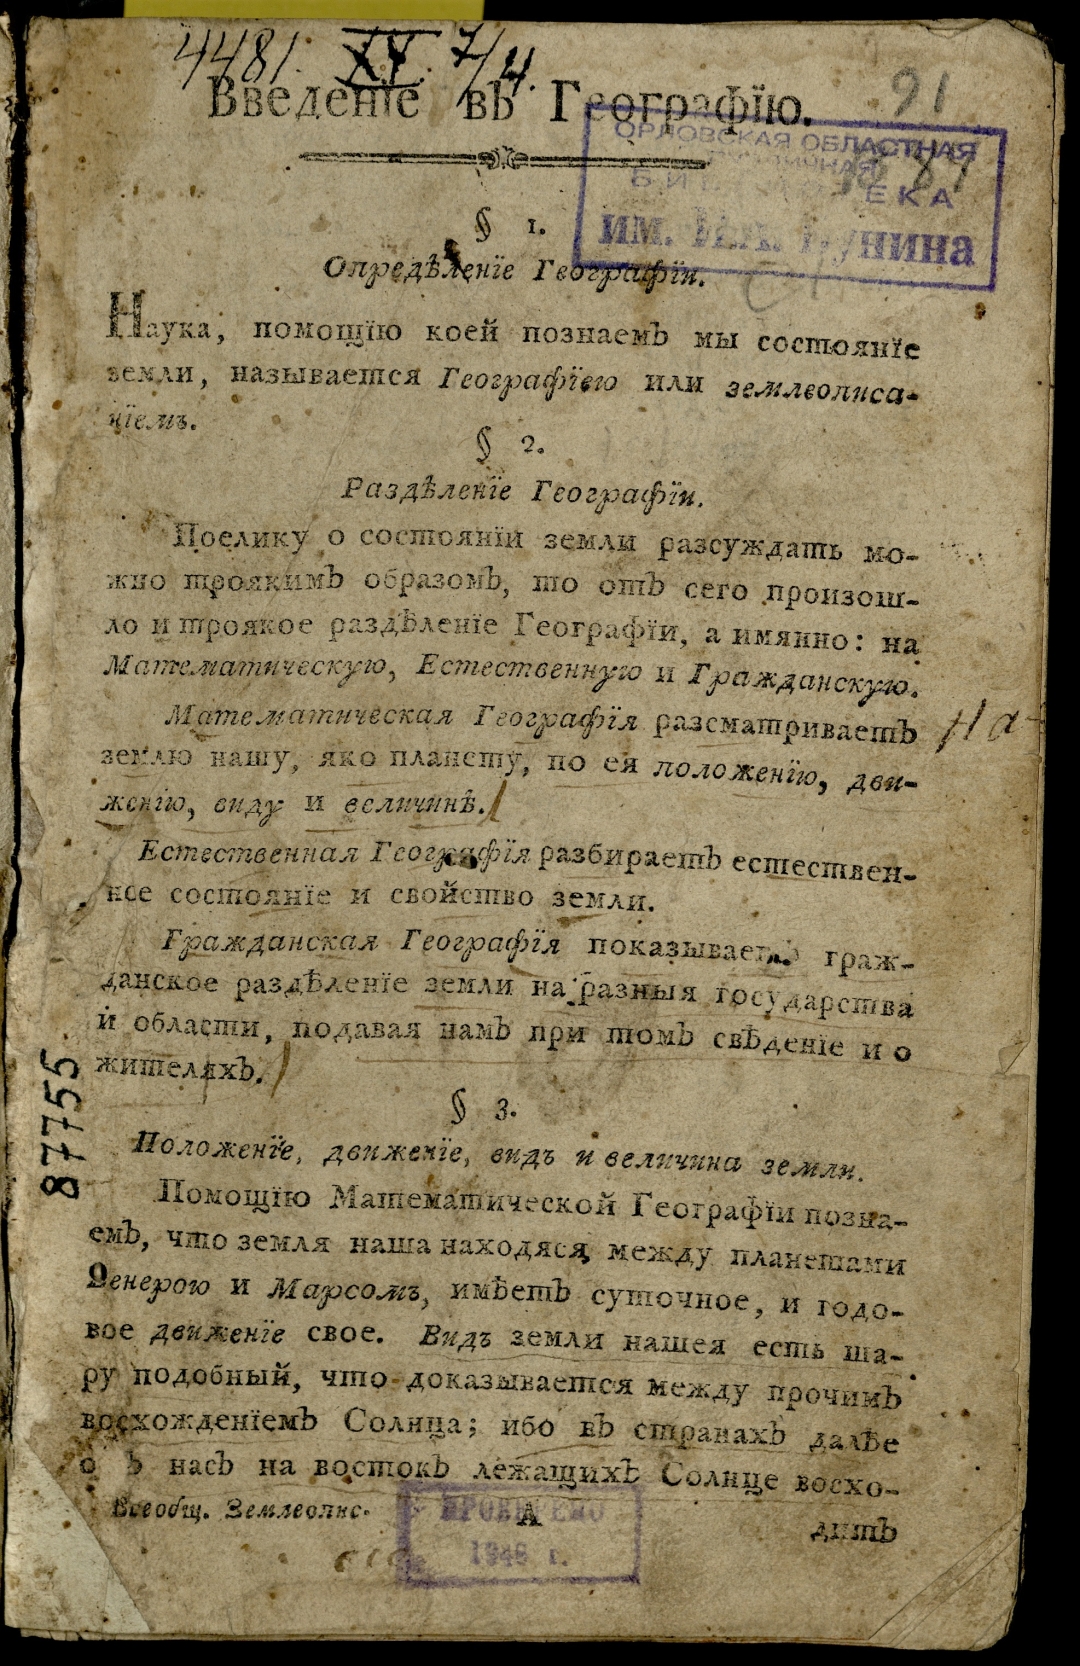 4481. XV. 7/4.
Введенїе въ Географїю.
91
ОРЛОВСКАЯ ОБЛАСТНАЯ
ЕКА
им. Бунина
§ 1.
Опредѣленїе Географїи.
Наука, помощїю коей познаемъ мы состоянїе
земли, называется Географїею или землеописа-
нїемъ.
§ 2.
Раздѣленїе Географїи.
Поелику о состоянїи земли разсуждать мо-
жно троякимъ образомъ, то отъ сего произош-
ло и троякое раздѣленїе Географїи, а имянно: на
Математическую, Естественную и Гражданскую.
Математическая Географїя разсматриваетъ
землю нашу, яко планету, по ея положенїю, дви-
женїю, виду и величинѣ.
На-
Естественная Географїя разбираетъ естествен-
ное состоянїе и свойство земли.
Гражданская Географїя показываетъ граж-
данское раздѣленїе земли на разныя государства
и области, подавая намъ при томъ свѣденїе и о
жителяхъ.
§ 3.
Положенїе, движенїе, видъ и величина земли.
Помощїю Математической Географїи позна-
емъ, что земля наша находяся между планетами
Венерою и Марсомъ, имѣетъ суточное, и годо-
вое движенїе свое. Видъ земли нашея есть ша-
ру подобный, что доказывается между прочимъ
восхожденїемъ Солнца; ибо въ странахъ далѣе
отъ насъ на востокъ лежащихъ Солнце восхо-
Всеобщ. Землеопис.
А
дитъ
ПРОВЕРЕНО
1948 г.
87755